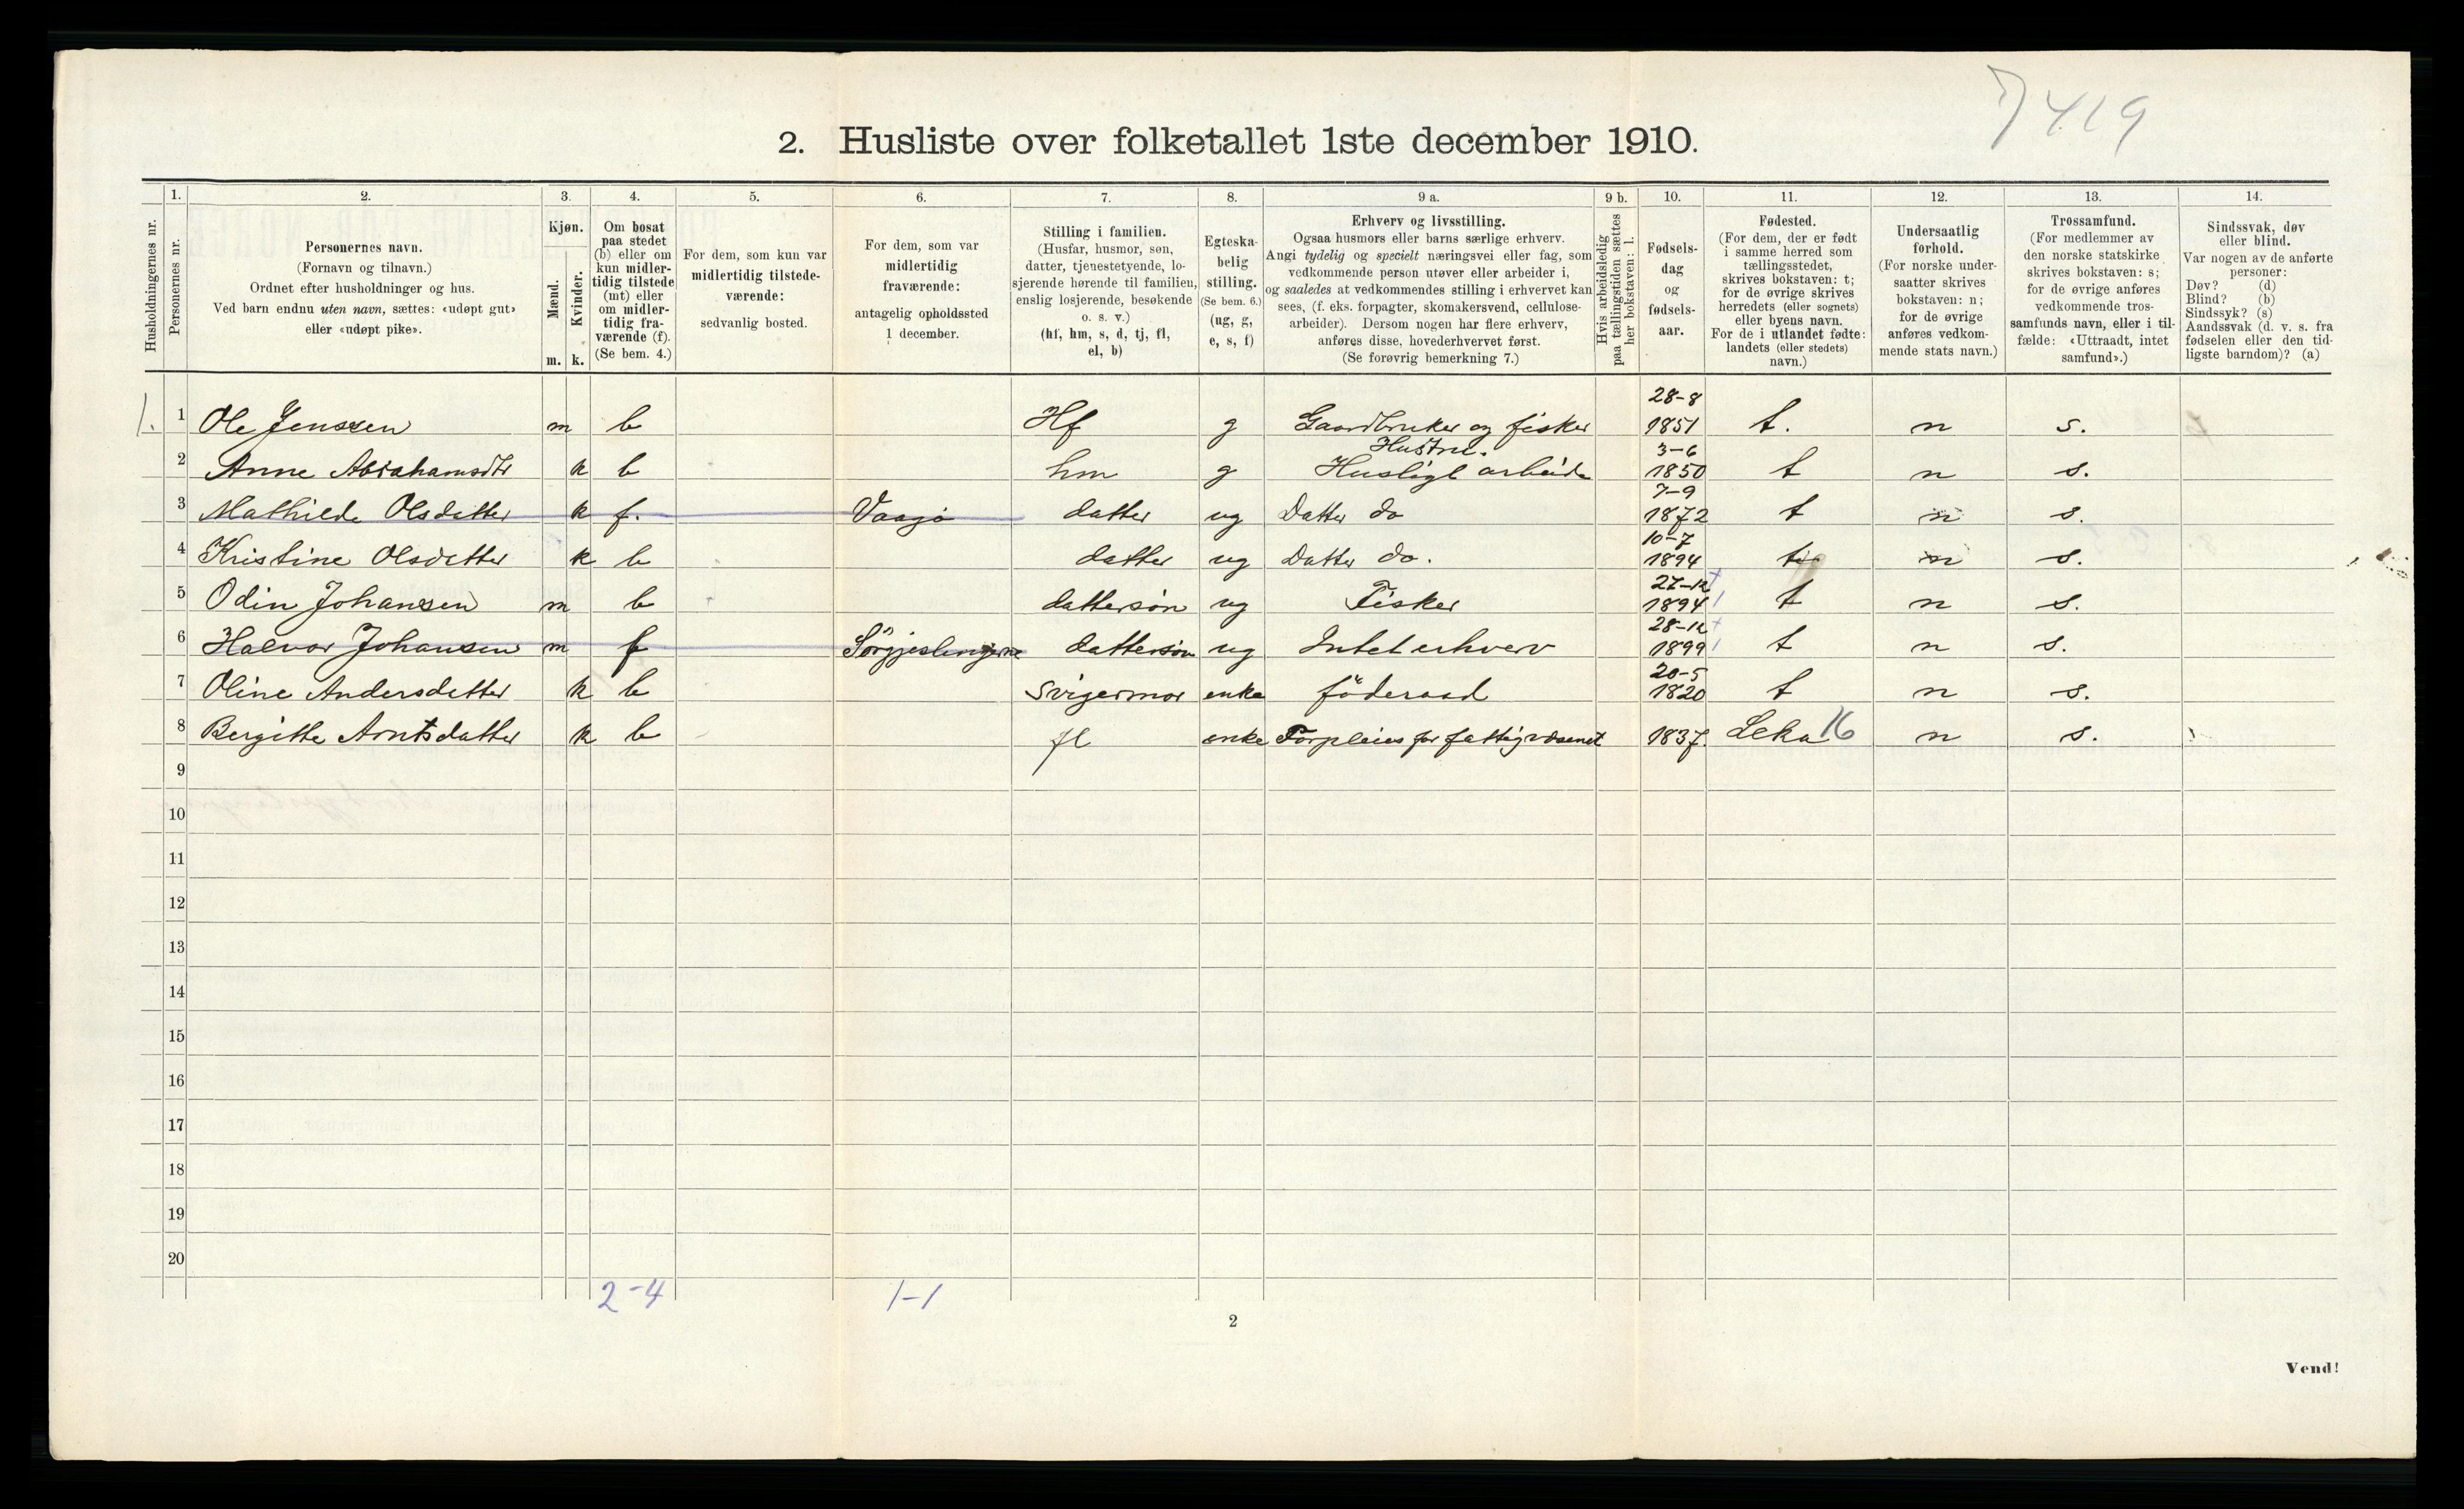 7419
2. Husliste over folketallet 1ste december 1910.
1. 2. 3. 4. 5. 6. 7. 8. 9 a. 9 b. 10. 11. 12. 13. 14.
Husholdningernes nr.
Personernes nr.
Personernes navn.
(Fornavn og tilnavn.)
Ordnet efter husholdninger og hus.
Ved barn endnu uten navn, sættes: «udøpt gut»
eller «udøpt pike».
Kjøn.
Mænd.
Kvinder.
m. k.
Om bosat
paa stedet
(b) eller om
kun midler-
tidig tilstede
(mt) eller
om midler-
tidig fra-
værende (f).
(Se bem. 4.)
For dem, som kun var
midlertidig tilstede-
værende:
sedvanlig bosted.
For dem, som var
midlertidig
fraværende:
antagelig opholdssted
1 december.
Stilling i familien.
(Husfar, husmor, søn,
datter, tjenestetyende, lo-
sjerende hørende til familien,
enslig losjerende, besøkende
o. s. v.)
(hf, hm, s, d, tj, fl,
el, b)
Egteska-
belig
stilling.
(Se bem. 6.)
(ug, g,
e, s, f)
Erhverv og livsstilling.
Ogsaa husmors eller barns særlige erhverv.
Angi tydelig og specielt næringsvei eller fag, som
vedkommende person utøver eller arbeider i,
og saaledes at vedkommendes stilling i erhvervet kan
sees, (f. eks. forpagter, skomakersvend, cellulose-
arbeider). Dersom nogen har flere erhverv,
anføres disse, hovederhvervet først.
(Se forøvrig bemerkning 7.)
Hvis arbeidsledig
paa tællingstiden sættes
her bokstaven: l.
Fødsels-
dag
og
fødsels-
aar.
Fødested.
(For dem, der er født
i samme herred som
tællingsstedet,
skrives bokstaven: t;
for de øvrige skrives
herredets (eller sognets)
eller byens navn.
For de i utlandet fødte:
landets (eller stedets)
navn.)
Undersaatlig
forhold.
(For norske under-
saatter skrives
bokstaven: n;
for de øvrige
anføres vedkom-
mende stats navn.)
Trossamfund.
(For medlemmer av
den norske statskirke
skrives bokstaven: s;
for de øvrige anføres
vedkommende tros-
samfunds navn, eller i til-
fælde: «Uttraadt, intet
samfund».)
Sindssvak, døv
eller blind.
Var nogen av de anførte
personer:
Døv? (d)
Blind? (b)
Sindssyk? (s)
Aandssvak (d. v. s. fra
fødselen eller den tid-
ligste barndom)? (a)
1. 1 Ole Jenssen m b Hf g Gaardbruker og fisker 28-8 1851 t. n s.
2 Anne Abrahamsdtr k b hm g Hustru. Husligt arbeide 3-6 1850 t n s.
3 Mathilde Olsdatter k f. Vaagø datter ug Datter do 7-9 1872 t n s.
4 Kristine Olsdatter k b datter ug Datter do. 10-7 1894 t n s.
5 Odin Johansen m b dattersøn ug Fisker 27-12 1894 t n s.
6 Halvor Johansen m f Sørgjeslingerne dattersøn ug Intet erhverv 28-12 1899 t n s.
7 Oline Andersdatter k b Svigermor enke föderaad 20-5 1820 t n s.
8 Bergitte Arntsdatter k b fl enke Forpleies for fattigvæsenet 1837. Leka 16 n s.
9
10
11
12
13
14
15
16
17
18
19
20
2-4 1-1
2
Vend!